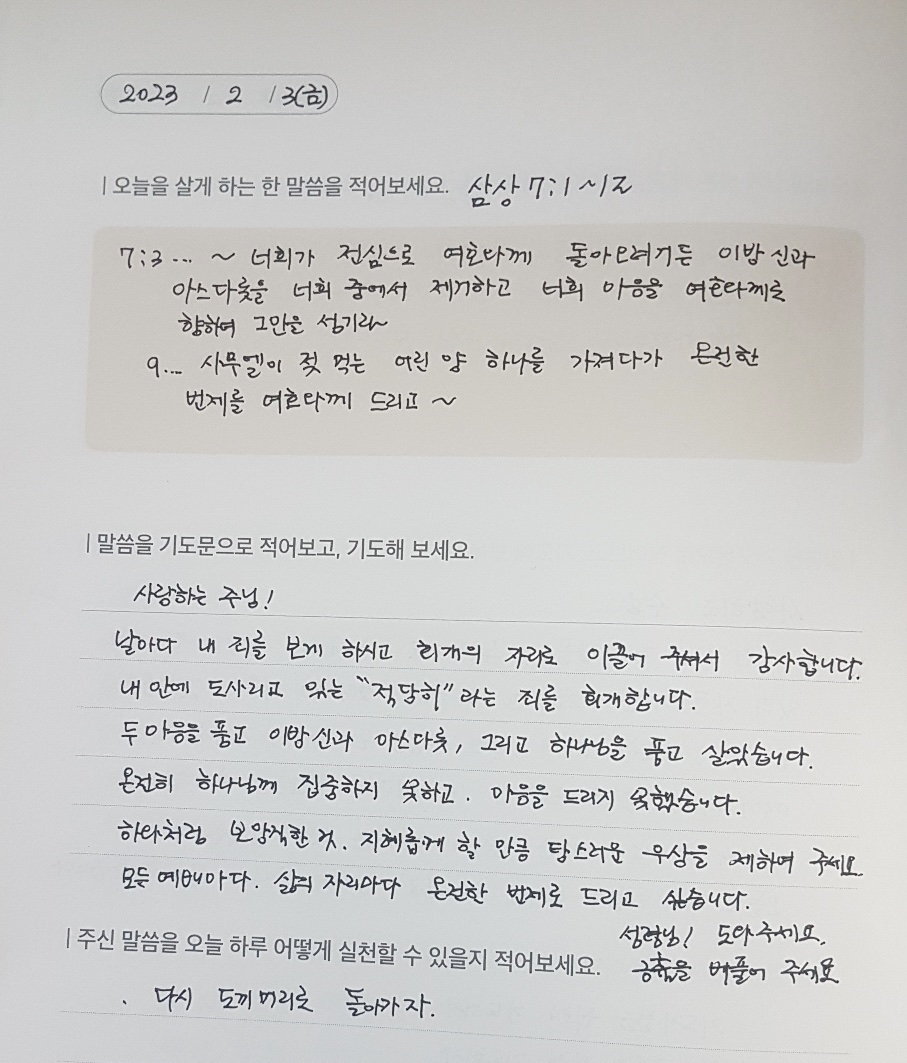 2023 / 2 / 3(금)
| 오늘을 살게 하는 한 말씀을 적어보세요. 삼상 7:1~12
7:3... ~ 너희가 전심으로 여호와께 돌아오려거든 이방 신과
아스다롯을 너희 중에서 제거하고 너희 마음을 여호와께로
향하여 그만을 섬기라~
9... 사무엘이 젖 먹는 어린 양 하나를 가져다가 온전한
번제를 여호와께 드리고 ~
| 말씀을 기도문으로 적어보고, 기도해 보세요.
사랑하는 주님!
날마다 내 죄를 보게 하시고 회개의 자리로 이끌어 주셔서 감사합니다.
내 안에 도사리고 있는 "적당히"라는 죄를 회개합니다.
두 마음을 품고 이방 신과 아스다롯, 그리고 하나님을 품고 살았습니다.
온전히 하나님께 집중하지 못하고. 마음을 드리지 못했습니다.
하와처럼 보암직한 것. 지혜롭게 할 만큼 탐스러운 우상을 제하여 주세요.
모든 예배마다. 삶의 자리마다 온전한 번제로 드리고 싶습니다.
성령님! 도와주세요.
긍휼을 베풀어 주세요
| 주신 말씀을 오늘 하루 어떻게 실천할 수 있을지 적어보세요.
. 다시 도끼머리로 돌아가자.